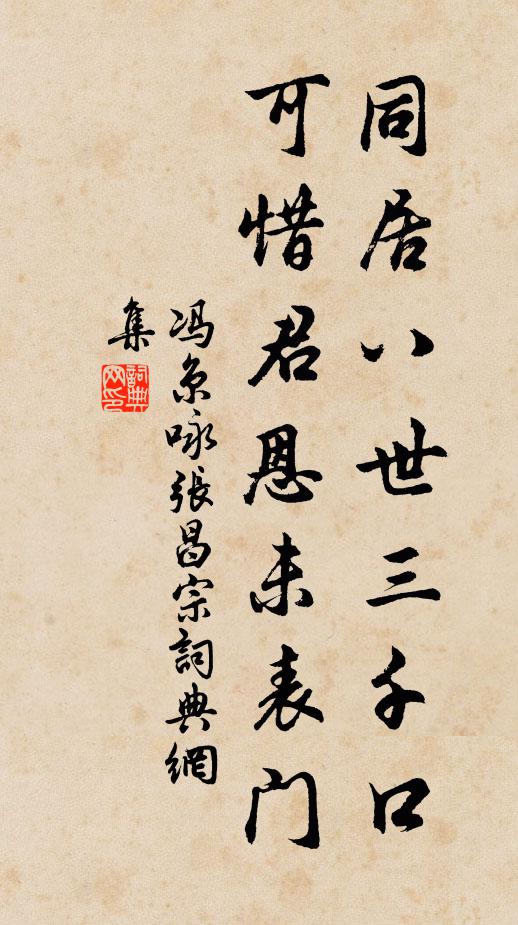 同居八世三千口
可惜君恩未表门
冯京咏張昌宗詞典網
集
詞典网印